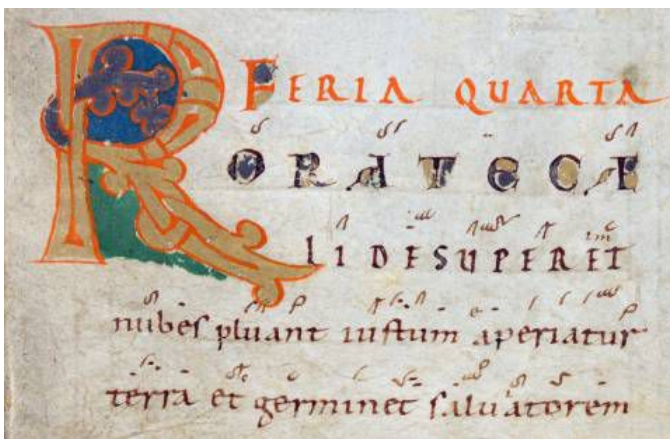 FERIA QUARTA
RORATE CE
LI DESUPER ET
nubes pluant iustum aperiatur
terra et germinet saluatorem